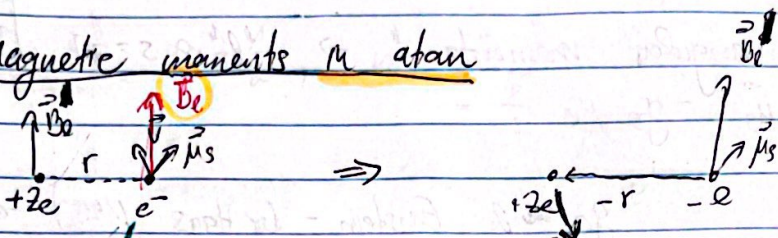 magnetic moments in atom
B⃗e B⃗e B⃗e
μ⃗s ⇒ μ⃗s
r -r
+Ze e⁻ +Ze -e